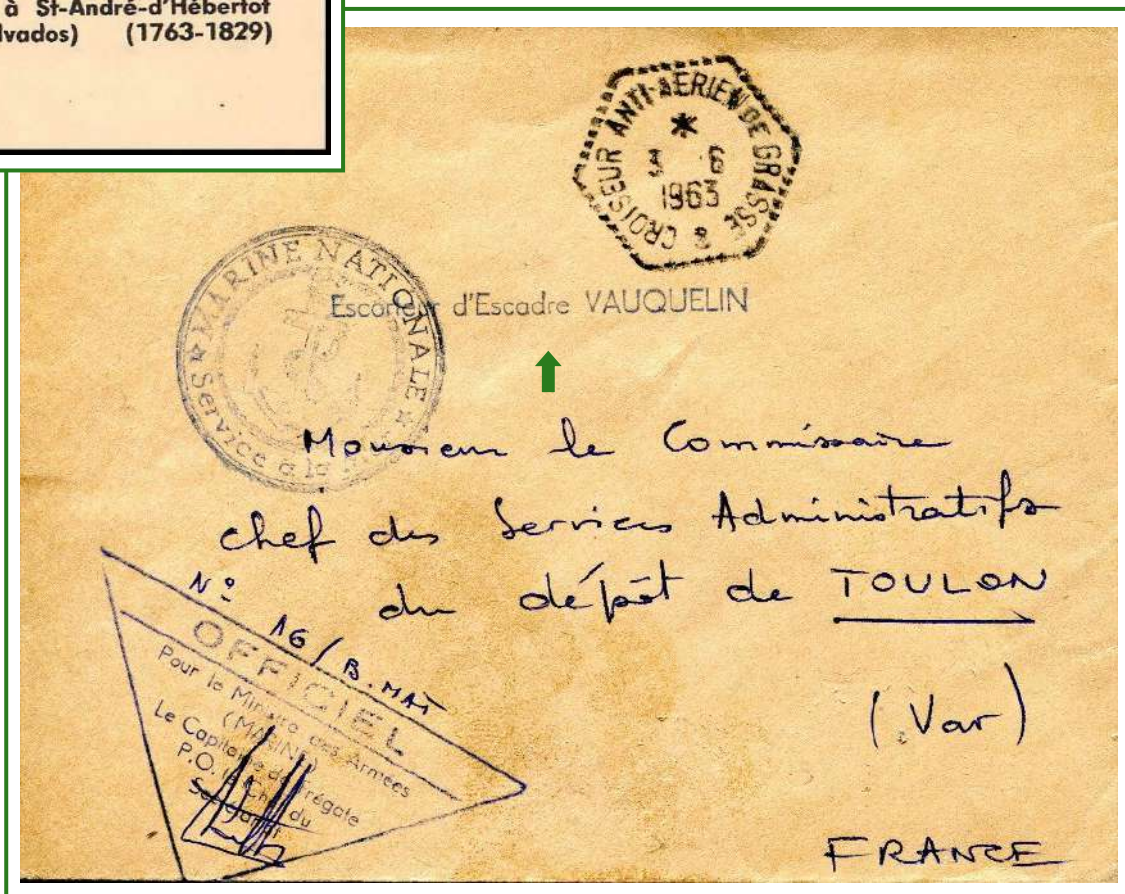 à St-André-d'Hébertot
lvados) (1763-1829)
CROISEUR ANTI-AERIEN DE GRASSE
3 6
1963
MARINE NATIONALE
Service à la
Escorteur d'Escadre VAUQUELIN
Monsieur le Commissaire
chef des Services Administratifs
du dépôt de TOULON
(Var)
FRANCE
N° 16/B.MAT
OFFICIEL
Pour le Ministre des Armées
(MARINE)
Le Capitaine de Frégate
P.O. le Chef du
Secrétariat